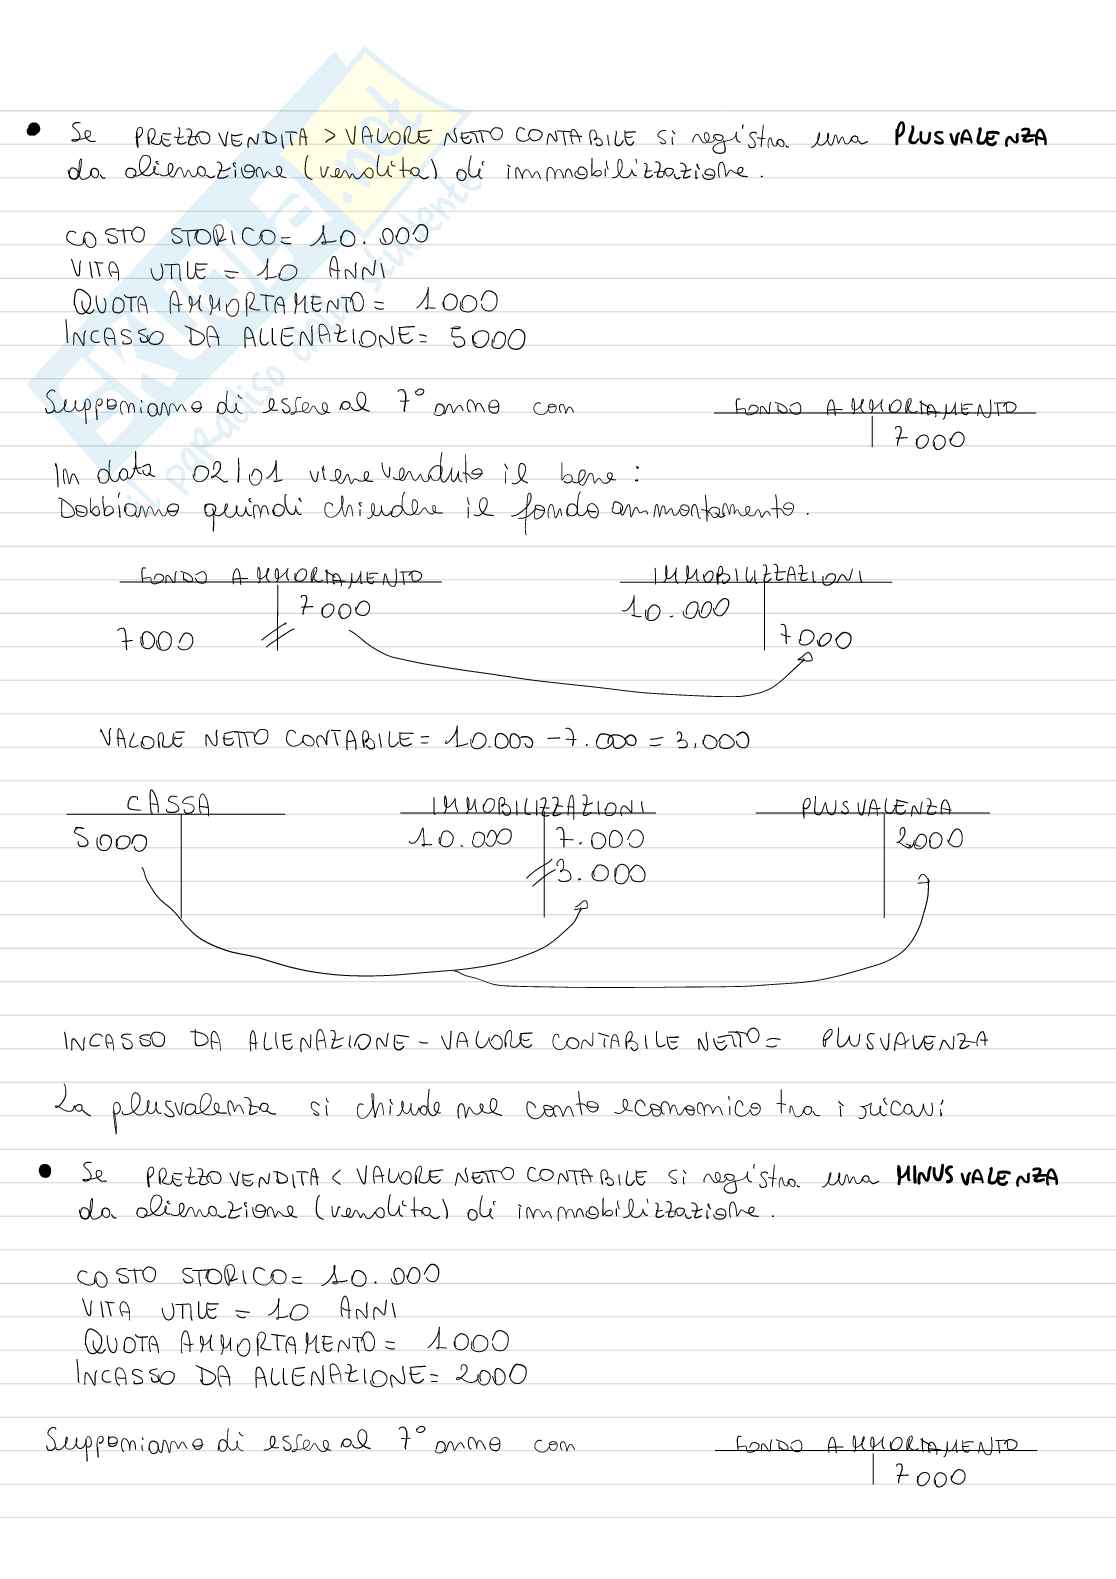 • Se PREZZO VENDITA > VALORE NETTO CONTABILE si registra una PLUSVALENZA
da alienazione (vendita) di immobilizzazione.
COSTO STORICO= 10.000
VITA UTILE = 10 ANNI
QUOTA AMMORTAMENTO= 1000
INCASSO DA ALIENAZIONE= 5000
Supponiamo di essere al 7° anno con FONDO AMMORTAMENTO
7000
In data 02/01 viene venduto il bene:
Dobbiamo quindi chiudere il fondo ammortamento.
FONDO AMMORTAMENTO IMMOBILIZZAZIONI
7000 10.000
7000 7000
VALORE NETTO CONTABILE= 10.000 - 7.000 = 3.000
CASSA IMMOBILIZZAZIONI PLUSVALENZA
5000 10.000 7.000 2000
3.000
INCASSO DA ALIENAZIONE - VALORE CONTABILE NETTO= PLUSVALENZA
La plusvalenza si chiude nel conto economico tra i ricavi
• Se PREZZO VENDITA < VALORE NETTO CONTABILE si registra una MINUSVALENZA
da alienazione (vendita) di immobilizzazione.
COSTO STORICO= 10.000
VITA UTILE = 10 ANNI
QUOTA AMMORTAMENTO= 1000
INCASSO DA ALIENAZIONE= 2000
Supponiamo di essere al 7° anno con FONDO AMMORTAMENTO
7000
SKUOLA.net
il paradiso dello studente